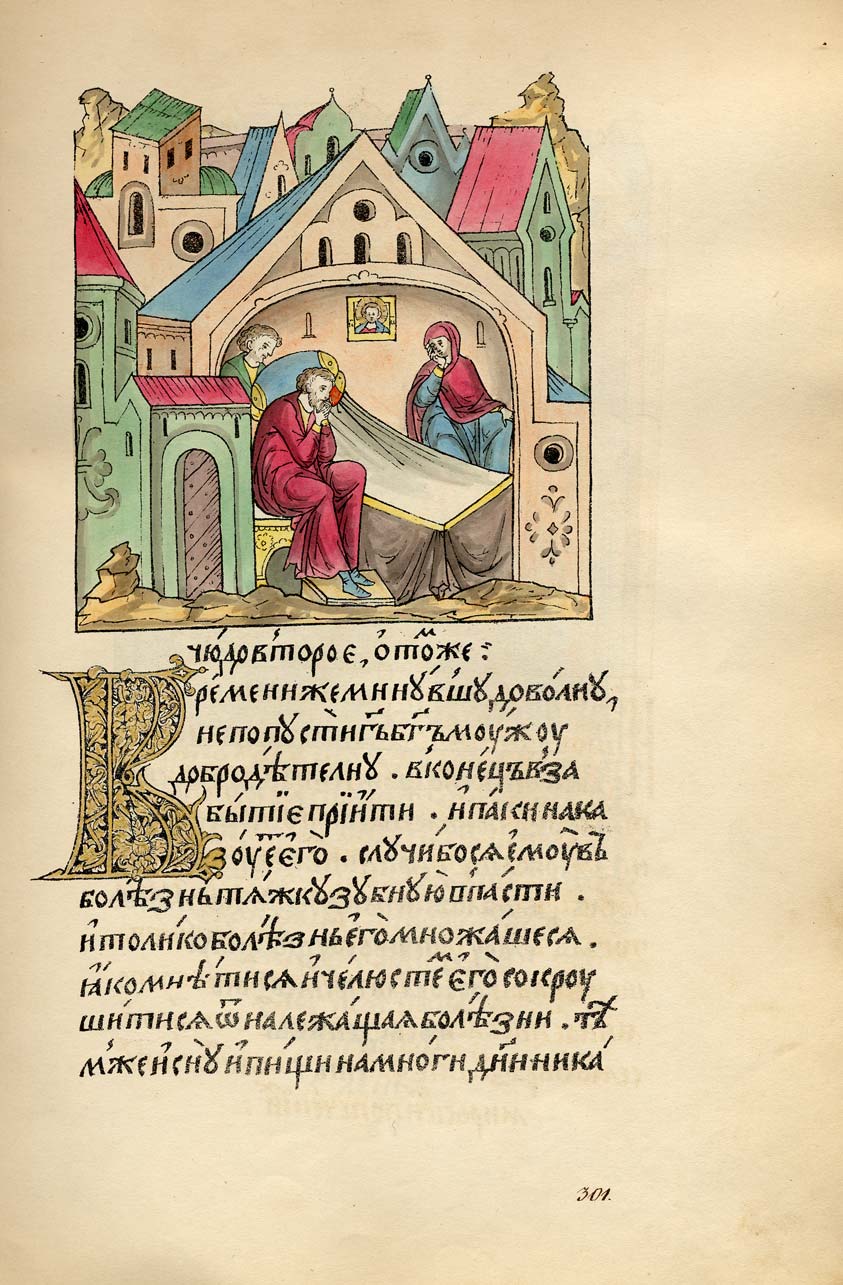 чю́до в҃торо́е, ѻ҆ то́мже :
Времени же минꙋ́вшꙋ дово́лнꙋ,
не попꙋстѝ г҃ь б҃гъ мꙋ́жꙋ
добродѣ́телнꙋ . в коне́цъ в за
бы́тїе прїи́ти . и҆ па́ки нака
зꙋ́етъ є҆го̀ . слꙋчи́ бо сѧ є҆мꙋ̀ въ
болѣ́знь тѧ́жкꙋ зꙋбнꙋ́ю впа́сти .
и҆ толи́ко болѣ́знь є҆го̀ мно́жашесѧ .
ꙗ҆́ко мнѣ́тисѧ и҆ че́люстемъ є҆го̀ сокрꙋ
ши́тисѧ ѿ належа́щаѧ болѣ́зни . тѣ́
мже и҆ снꙋ̀ и҆ пи́щи на мно́ги дн҃и ника́
301.